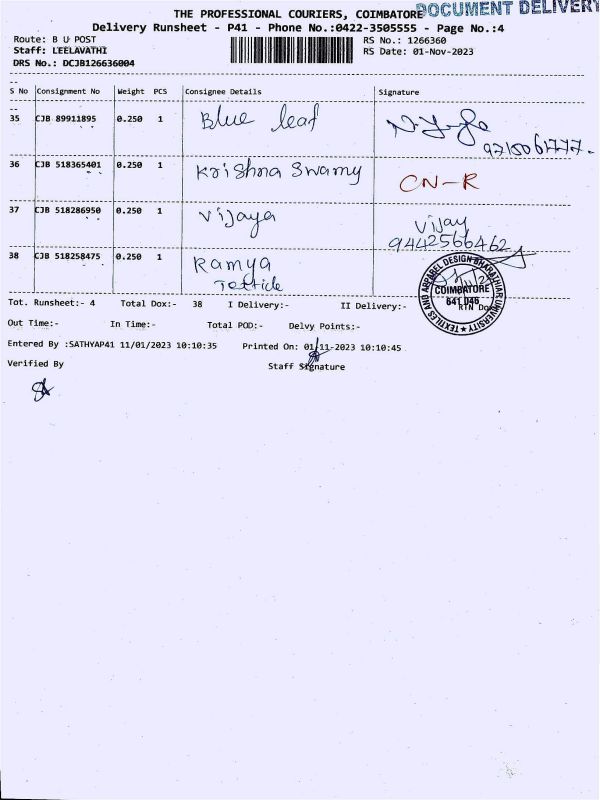 DOCUMENT DELIVERY
THE PROFESSIONAL COURIERS, COIMBATORE
Delivery Runsheet - P41 - Phone No.:0422-3505555 - Page No.:4
Route: B U POST RS No.: 1266360
Staff: LEELAVATHI RS Date: 01-Nov-2023
DRS No.: DCJB126636004
S No Consignment No Weight PCS Consignee Details Signature
35 CJB 89911895 0.250 1 Blue leaf
9715061777.
36 CJB 518365401 0.250 1 Krishna Swamy CN-R
37 CJB 518286950 0.250 1 Vijaya Vijay
9442566462
38 CJB 518258475 0.250 1 Ramya
Textile
TEXTILES AND APPAREL DESIGN BHARATHIAR UNIVERSITY
COIMBATORE
641 046
RTN Dox
Tot. Runsheet:- 4 Total Dox:- 38 I Delivery:- II Delivery:-
Out Time:- In Time:- Total POD:- Delvy Points:-
Entered By :SATHYAP41 11/01/2023 10:10:35 Printed On: 01-11-2023 10:10:45
Verified By Staff Signature